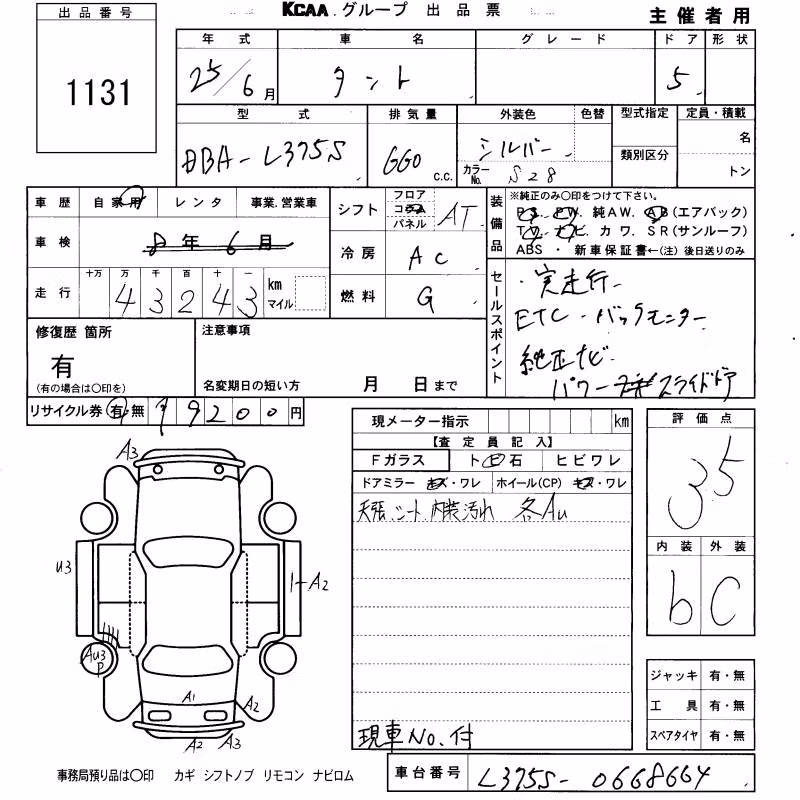 出品番号
1131
KCAA.グループ 出品票
主催者用
年式 車名 グレード ドア 形状
25/6月 タント 5
型式 排気量 外装色 色替 型式指定 定員・積載
DBA-L375S 660 c.c. シルバー 名
カラーNo. S28 類別区分 トン
車歴 自家用 レンタ 事業.営業車
車検 8年6月
走行 十万 万 千 百 十 一
43243 km マイル
シフト フロア コラム パネル AT
冷房 AC
燃料 G
装備品 ※純正のみ○印をつけて下さい。
PS. PW. 純AW. AB(エアバック)
TV. ナビ. カワ. SR(サンルーフ)
ABS ・ 新車保証書←(注)後日送りのみ
セールスポイント
・実走行
ETC・バックモニター
純正ナビ
パワースライドドア
修復歴 箇所
有
(有の場合は○印を)
注意事項
名変期日の短い方 月 日まで
リサイクル券 有 無 9200円
現メーター指示 km
【査定員記入】
Fガラス ト ビ 石 ヒビワレ
ドアミラー キズ・ワレ ホイール(CP) キズ・ワレ
天張、シート、内装汚れ 各Au
現車No.付
評価点
35
内装 外装
b C
ジャッキ 有・無
工具 有・無
スペアタイヤ 有・無
A3
U3
A2
Au3
P
A1
A2
A2
A3
事務局預り品は○印 カギ シフトノブ リモコン ナビロム
車台番号 L375S-0668664